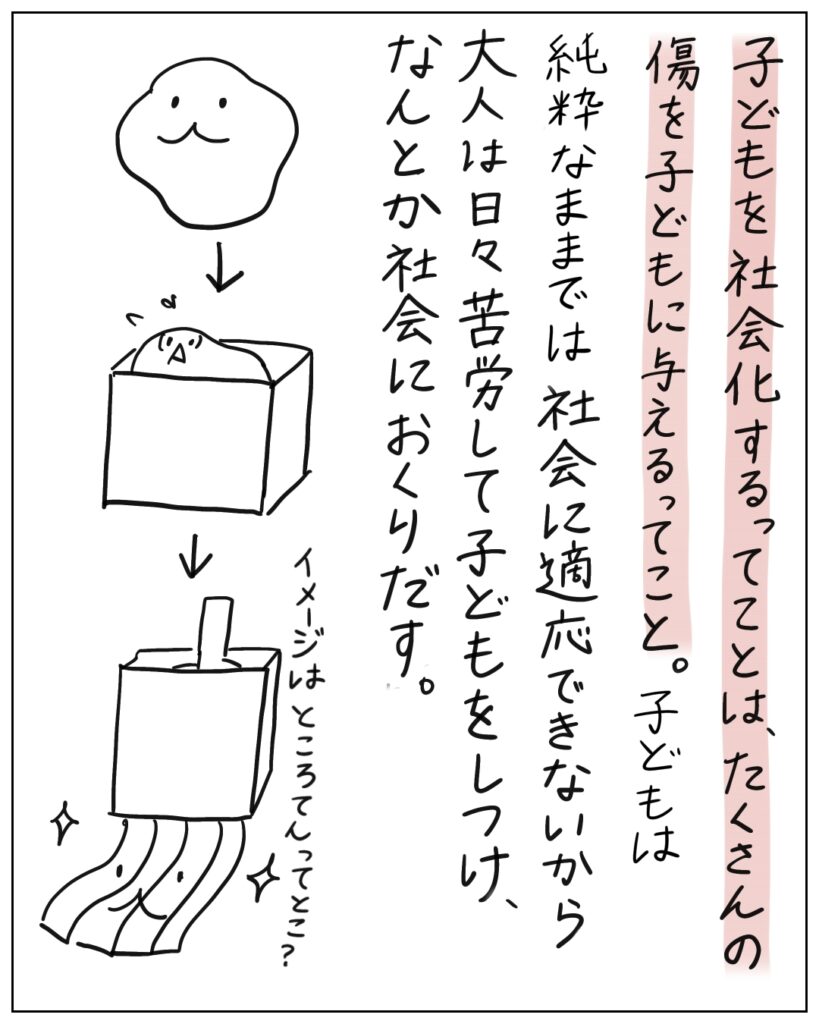 子どもを社会化するってことは、たくさんの
傷を子どもに与えるってこと。子どもは
純粋なままでは社会に適応できないから
大人は日々苦労して子どもをしつけ、
なんとか社会におくりだす。
イメージはところてんってとこ?